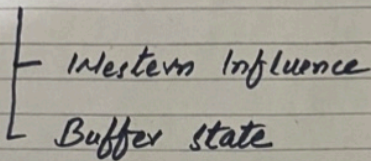 Western Influence
Buffer state